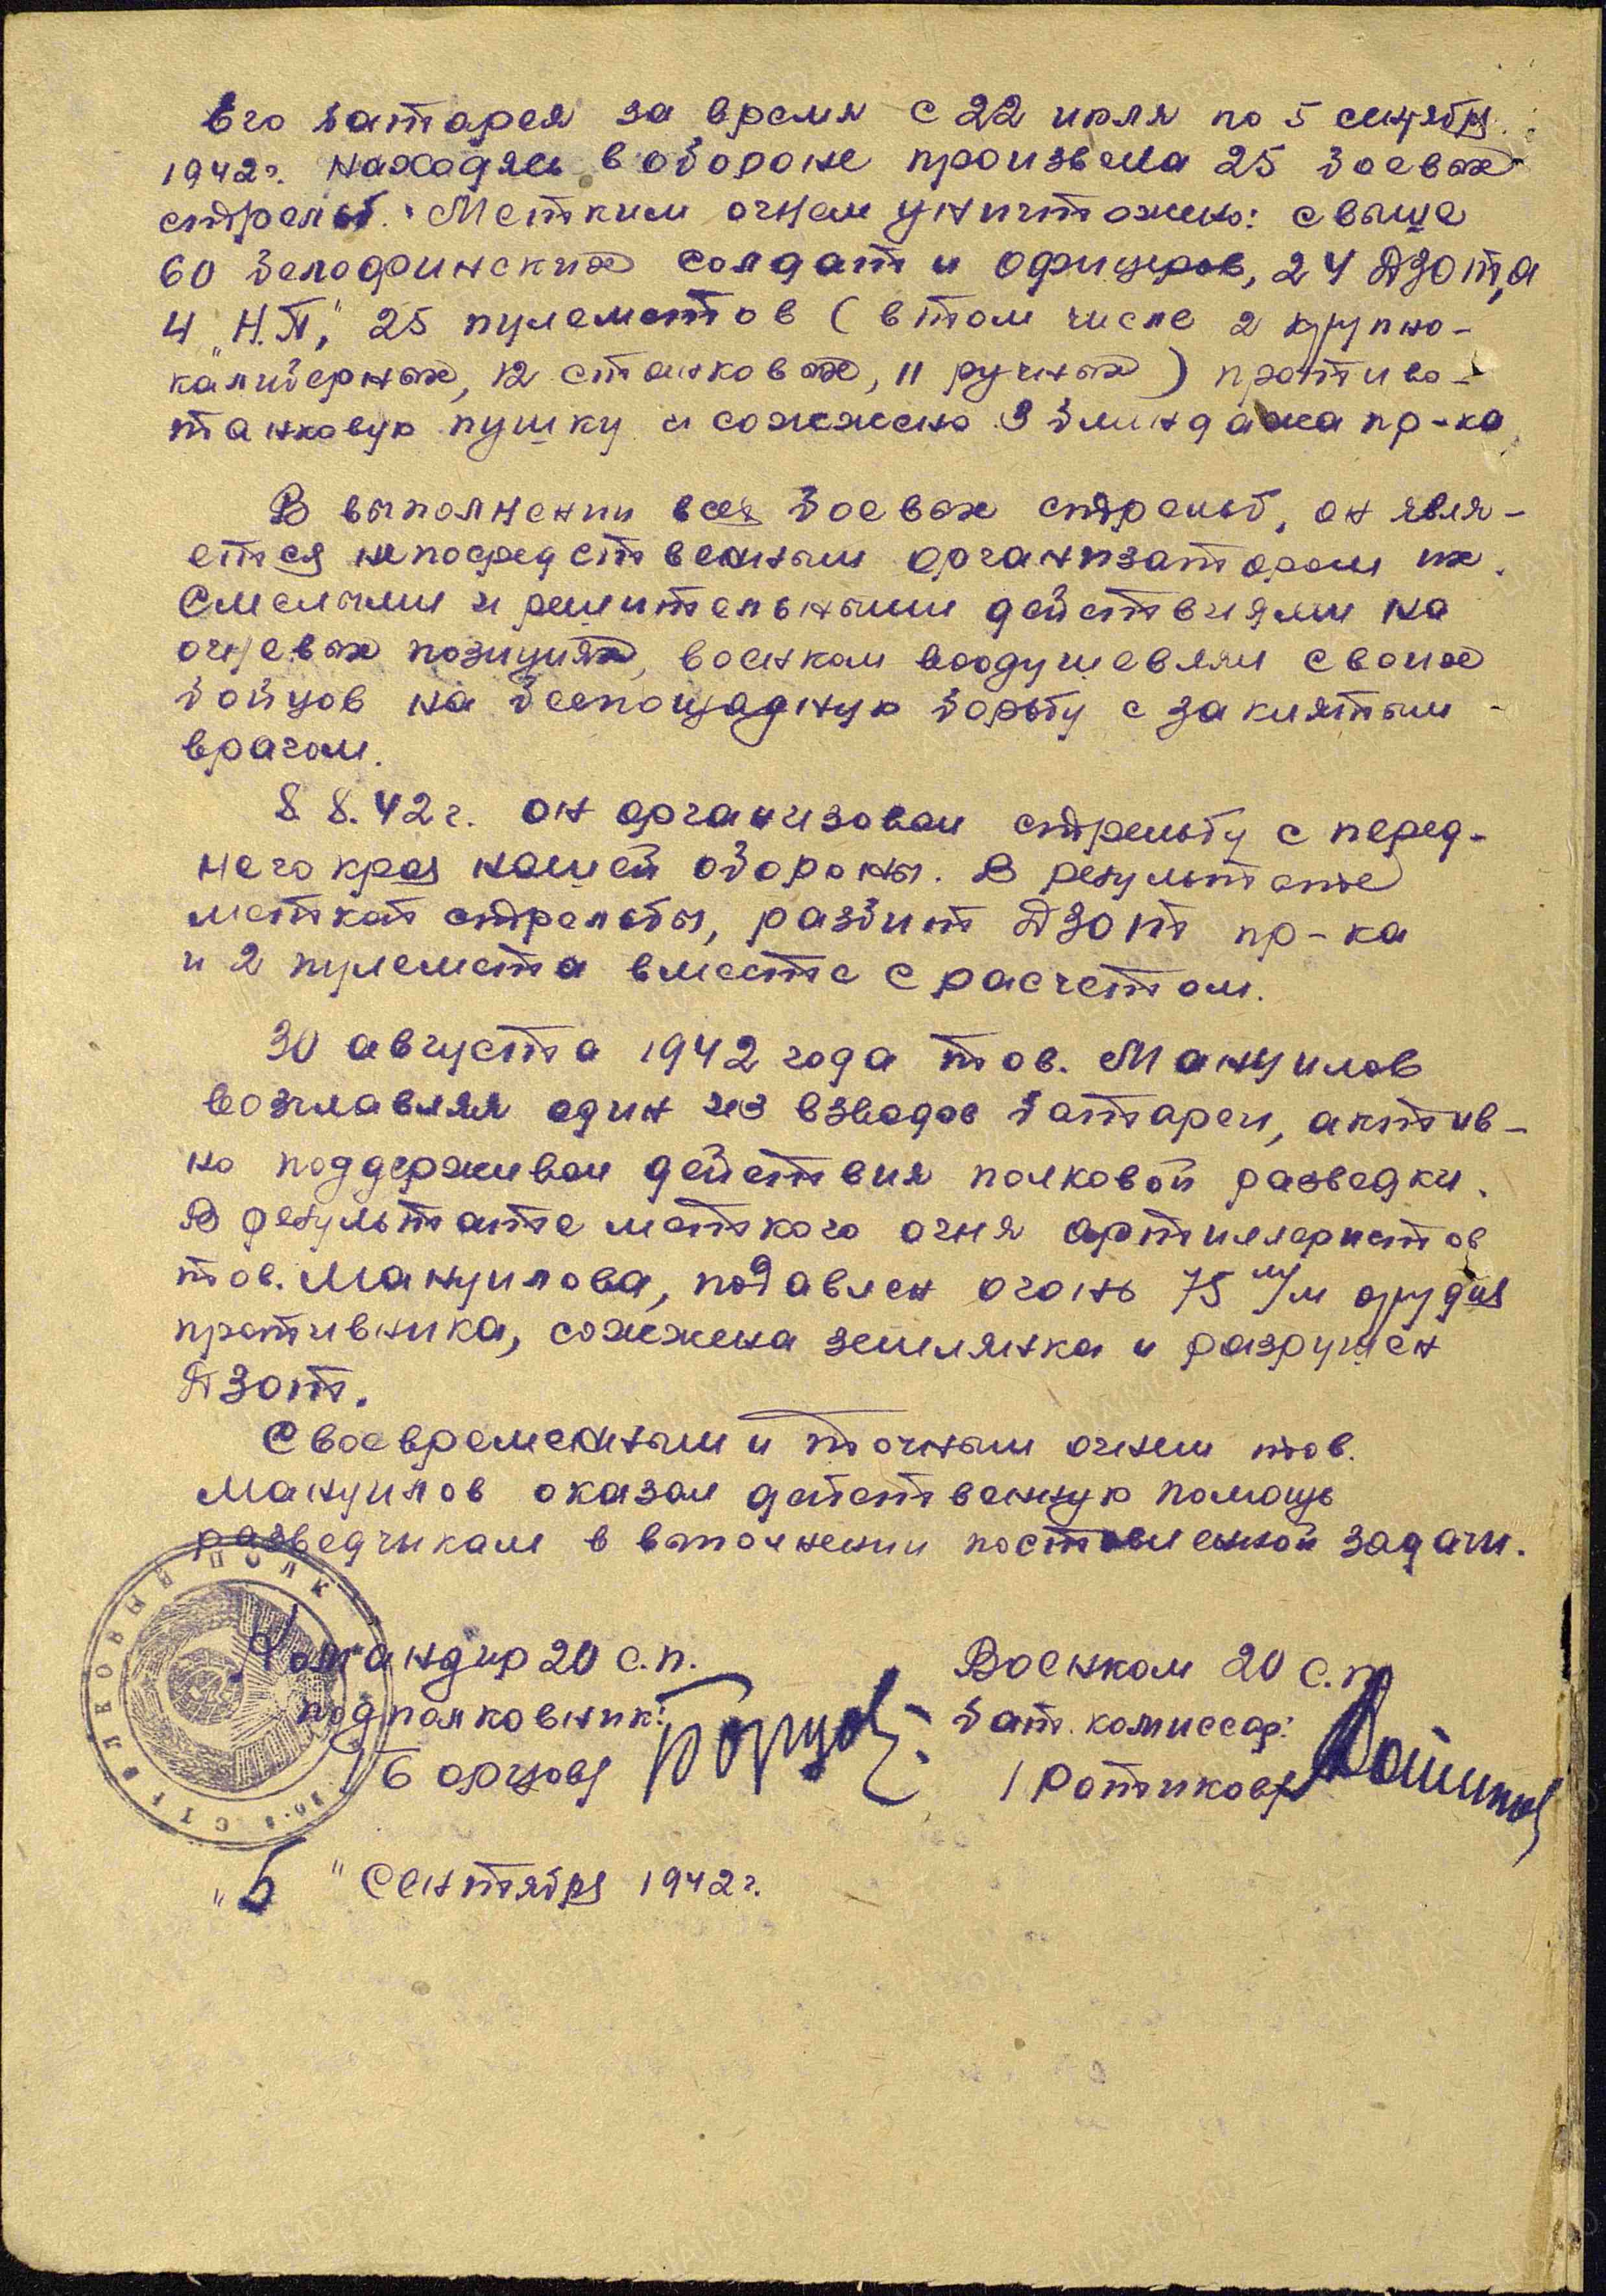 Его батарея за время с 22 июля по 5 сентября
1942г. находясь в обороне произвела 25 боевых
стрельб. Метким огнем уничтожено: свыше
60 белофинских солдат и офицеров, 24 ДЗОТ,а
4 "Н.П", 25 пулеметов (в том числе 2 крупно-
калиберных, 12 станковых, 11 ручных) противо-
танковую пушку и сожжено 3 блиндажа пр-ка
В выполнении всех боевых стрельб, он явля-
ется непосредственным организатором их.
Смелыми и решительными действиями на
огневых позициях, военком воодушевлял своих
бойцов на беспощадную борьбу с заклятым
врагом.
8.8.42г. он организовал стрельбу с перед-
него края нашей обороны. В результате
меткой стрельбы, разбит ДЗОТ пр-ка
и 2 пулемета вместе с расчетом.
30 августа 1942 года тов. Мануилов
возглавляя один из взводов батареи, актив-
но поддерживал действия полковой разведки.
В результате меткого огня артиллеристов
тов. Мануилова, подавлен огонь 75 м/м орудия
противника, сожжена землянка и разрушен
ДЗОТ.
Своевременным и точным огнем тов.
Мануилов оказал действенную помощь
разведчикам в выполнении поставленной задачи.
Командир 20 с.п.
подполковник:
/Борцов/ Борцов
Военком 20 с.п.
бат. комиссар:
/Ротиков/ Ротиков
"5" Сентября 1942г.
СТРЕЛКОВЫЙ ПОЛК